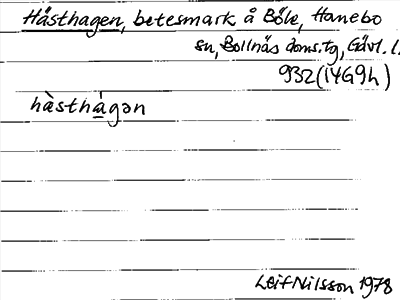 Hästhagen, betesmark å Böle, Hanebo
sn, Bollnäs doms.tg, Gävl. l.
932(14G9h)
hàsthágən
Leif Nilsson 1978